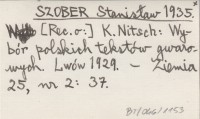 SZOBER Stanisław 1935.
[Rec. o:] K. Nitsch: Wy-
bór polskich tekstów gwaro-
wych. Lwów 1929. – Ziemia
25, nr 2: 37.
BJ/066/1153